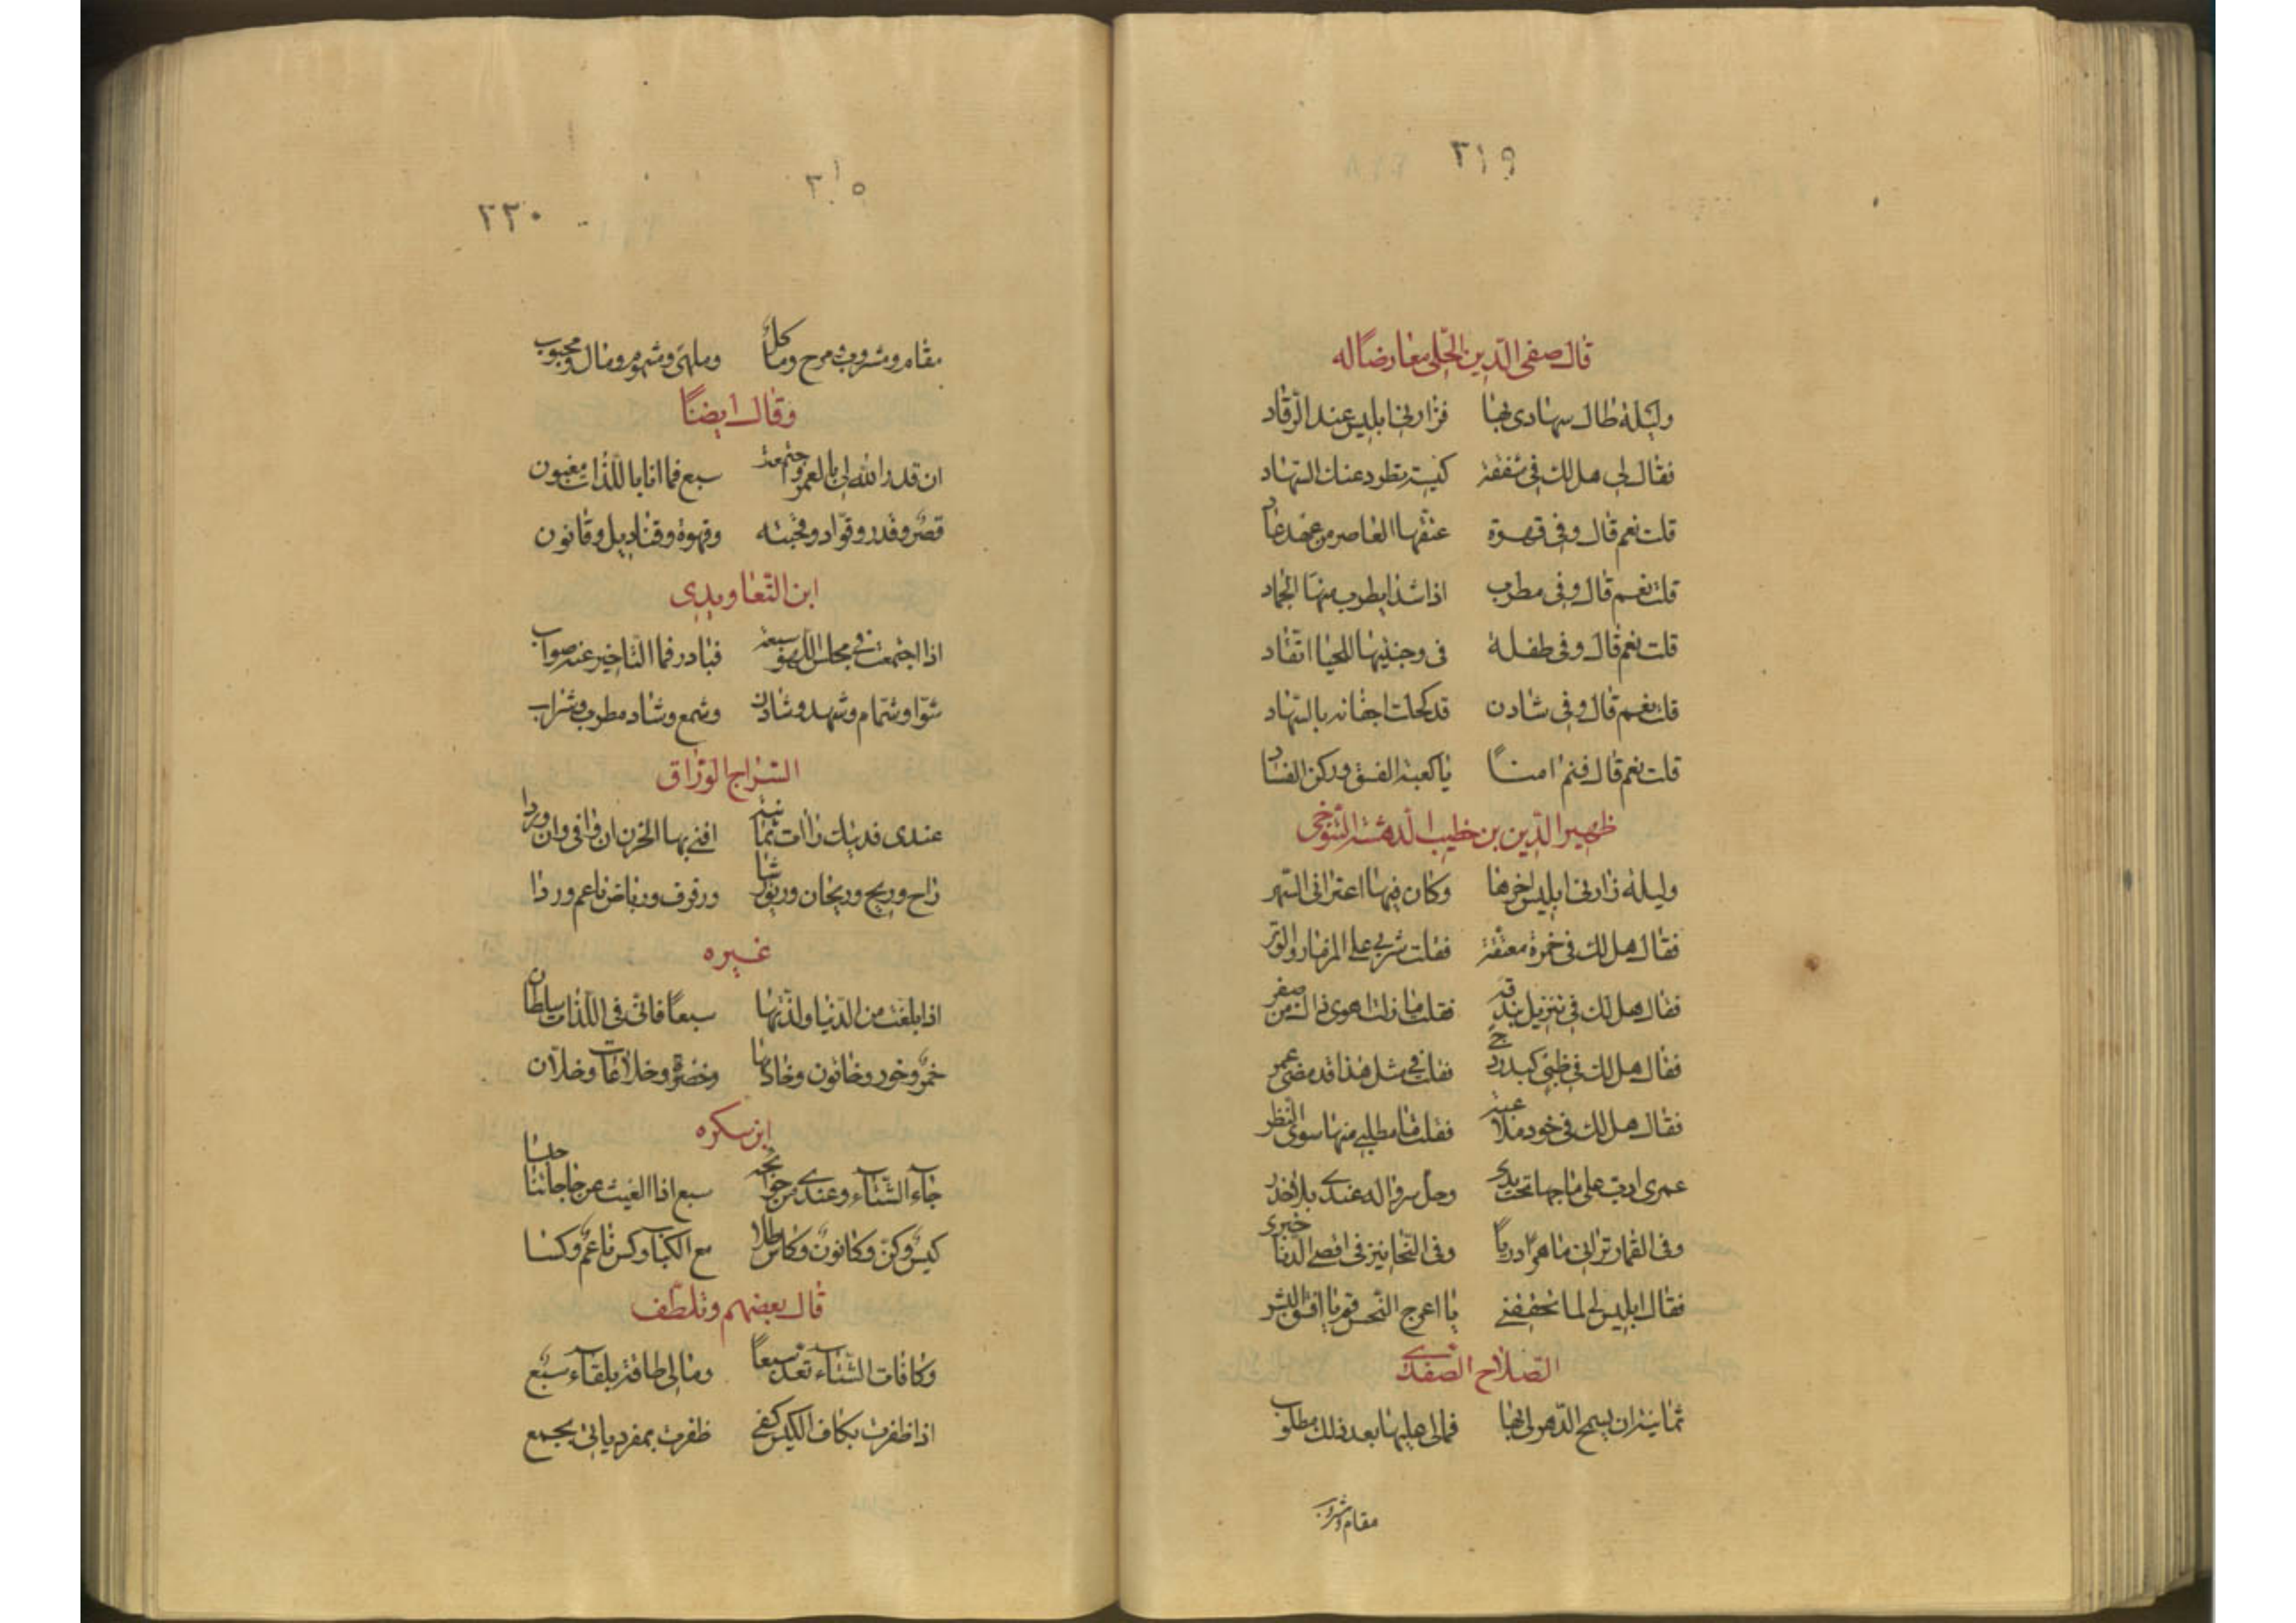 ٣١٩
قال صفى الدين الحلى معارضًا له
وليلة طال سهادى بها فزارنى ابليس عند الرقاد
فقال لى هل لك فى شفقة كيسة تطرد عنك السهاد
قلت نعم قال وفى قهوة عتقها العاصر من عهد عاد
قلت نعم قال وفى مطرب اذا شدا يطرب منها الجماد
قلت نعم قال وفى طفلة فى وجنتيها للحيا اتقاد
قلت نعم قال وفى شادن قد كحلت اجفانه بالسهاد
قلت نعم قال فنم امنًا يا كعبة الفسق وركن الفساد
ظهير الدين بن خطيب التنوخى
وليلة زارنى ابليس اخرها وكان فيها اعترانى السهر
فقال هل لك فى خمرة معتقة فقلت شربى على المزمار والوتر
فقال هل لك فى تنزيل بندقة فقلت ما زلت اهوى ذاك من صغر
فقال هل لك فى ظبى كبدر دجى فقلت فى مثل هذا قد مضى عمر
فقال هل لك فى خود ملاعبة فقلت ما مطلبى منها سوى النظر
عمرى على ماجها تحت يدى وحل سرواله عندى بلا خدر
وفى القمار ترانى ماهرًا دربًا وفى فى اقصى الدنا خبرى
فقال ابليس لى لما تحققنى يا اعرج النحس قم يا افسق البشر
الصلاح الصفدى
ثمانية ان يسمح الدهر لى بها فما لى عليها بعد ذلك مطلوب
مقام ومشروب
٣١٥
٢٢٠
مقام ومشروب ومزح ومأكل وملهى ومشموم ومال ومحبوب
وقال ايضًا
ان قدر الله لى بالعمر واجتمعت سبع فما انا باللذات مغبون
قصر وقدر وقواد وقحبته وقهوة وقناديل وقانون
ابن التعاويدى
اذا اجتمعت فى مجلس اللهو سبعة فبادر فما التاخير عنه صواب
شوا وشمام وشهد وشادن وشمع وشاد مطرب وشراب
السراج الوراق
عندى فديتك راآت ثمانية افنى بها الحزن ان وافى وان وردا
راح وريح وريحان وريق رشا ورفرف ورياض ناعم وردا
غيره
اذا بلغت من الدنيا ولذتها سبعًا فانى فى اللذات سلطان
خمر وخود وخاتون وخادمها وخضرة وخلاعات وخلان
ابن سكره
جاء الشتاء وعندى من حوائجه سبع اذا الغيث عن حاجاتنا حبسا
كيس وكن وكانون وكاس طلا مع الكباب وكس ناعم وكسا
قال بعضهم وتلطف
وكافات الشتاء تعد سبعًا وما لى طاقة بلقاء سبع
اذا ظفرت بكاف الكيس كفى ظفرت بمفرد ياتى بجمع